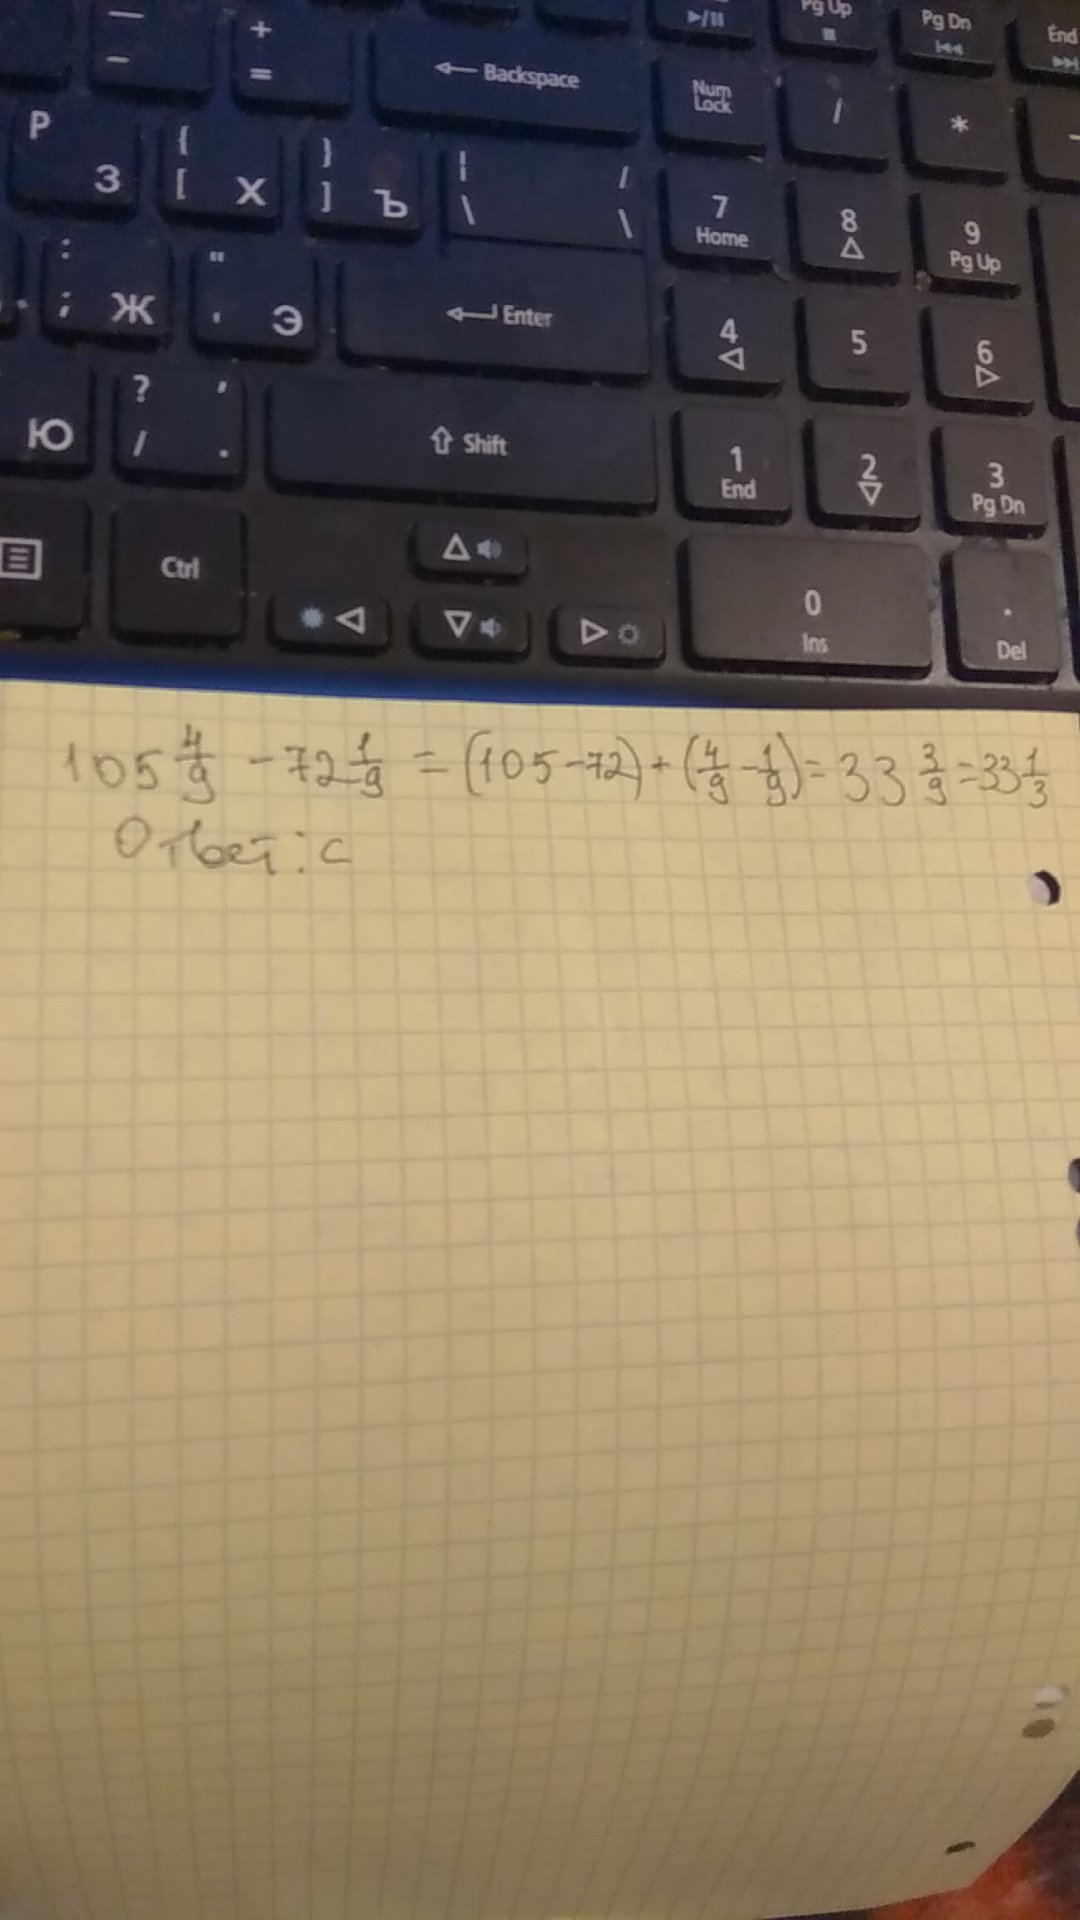 Pg Up
Pg Dn
End
— + ← Backspace Num Lock / *
- =
P { } | / 7 8 9
З [ Х ] Ъ \ \ Home Pg Up
: " ← Enter 4 5 6
; Ж ' Э
Ю ? , ⇧ Shift 1 2 3
/ . End Pg Dn
Ctrl 0 .
Ins Del
105 4/9 - 72 1/9 = (105-72) + (4/9 - 1/9) = 33 3/9 = 33 1/3
Ответ: с